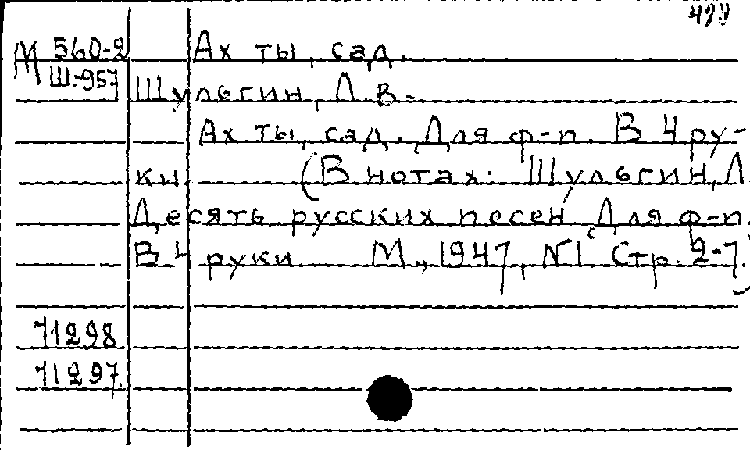 М 560-2 Ах ты, сад.
Ш-957 Шульгин, Л. В.
Ах ты, сад. Для ф-п. В 4 ру-
ки. (В нотах: Шульгин, Л.
Десять русских песен. Для ф-п.
В 4 руки. М., 1947, №1. Стр. 2-7.)
71298
71297